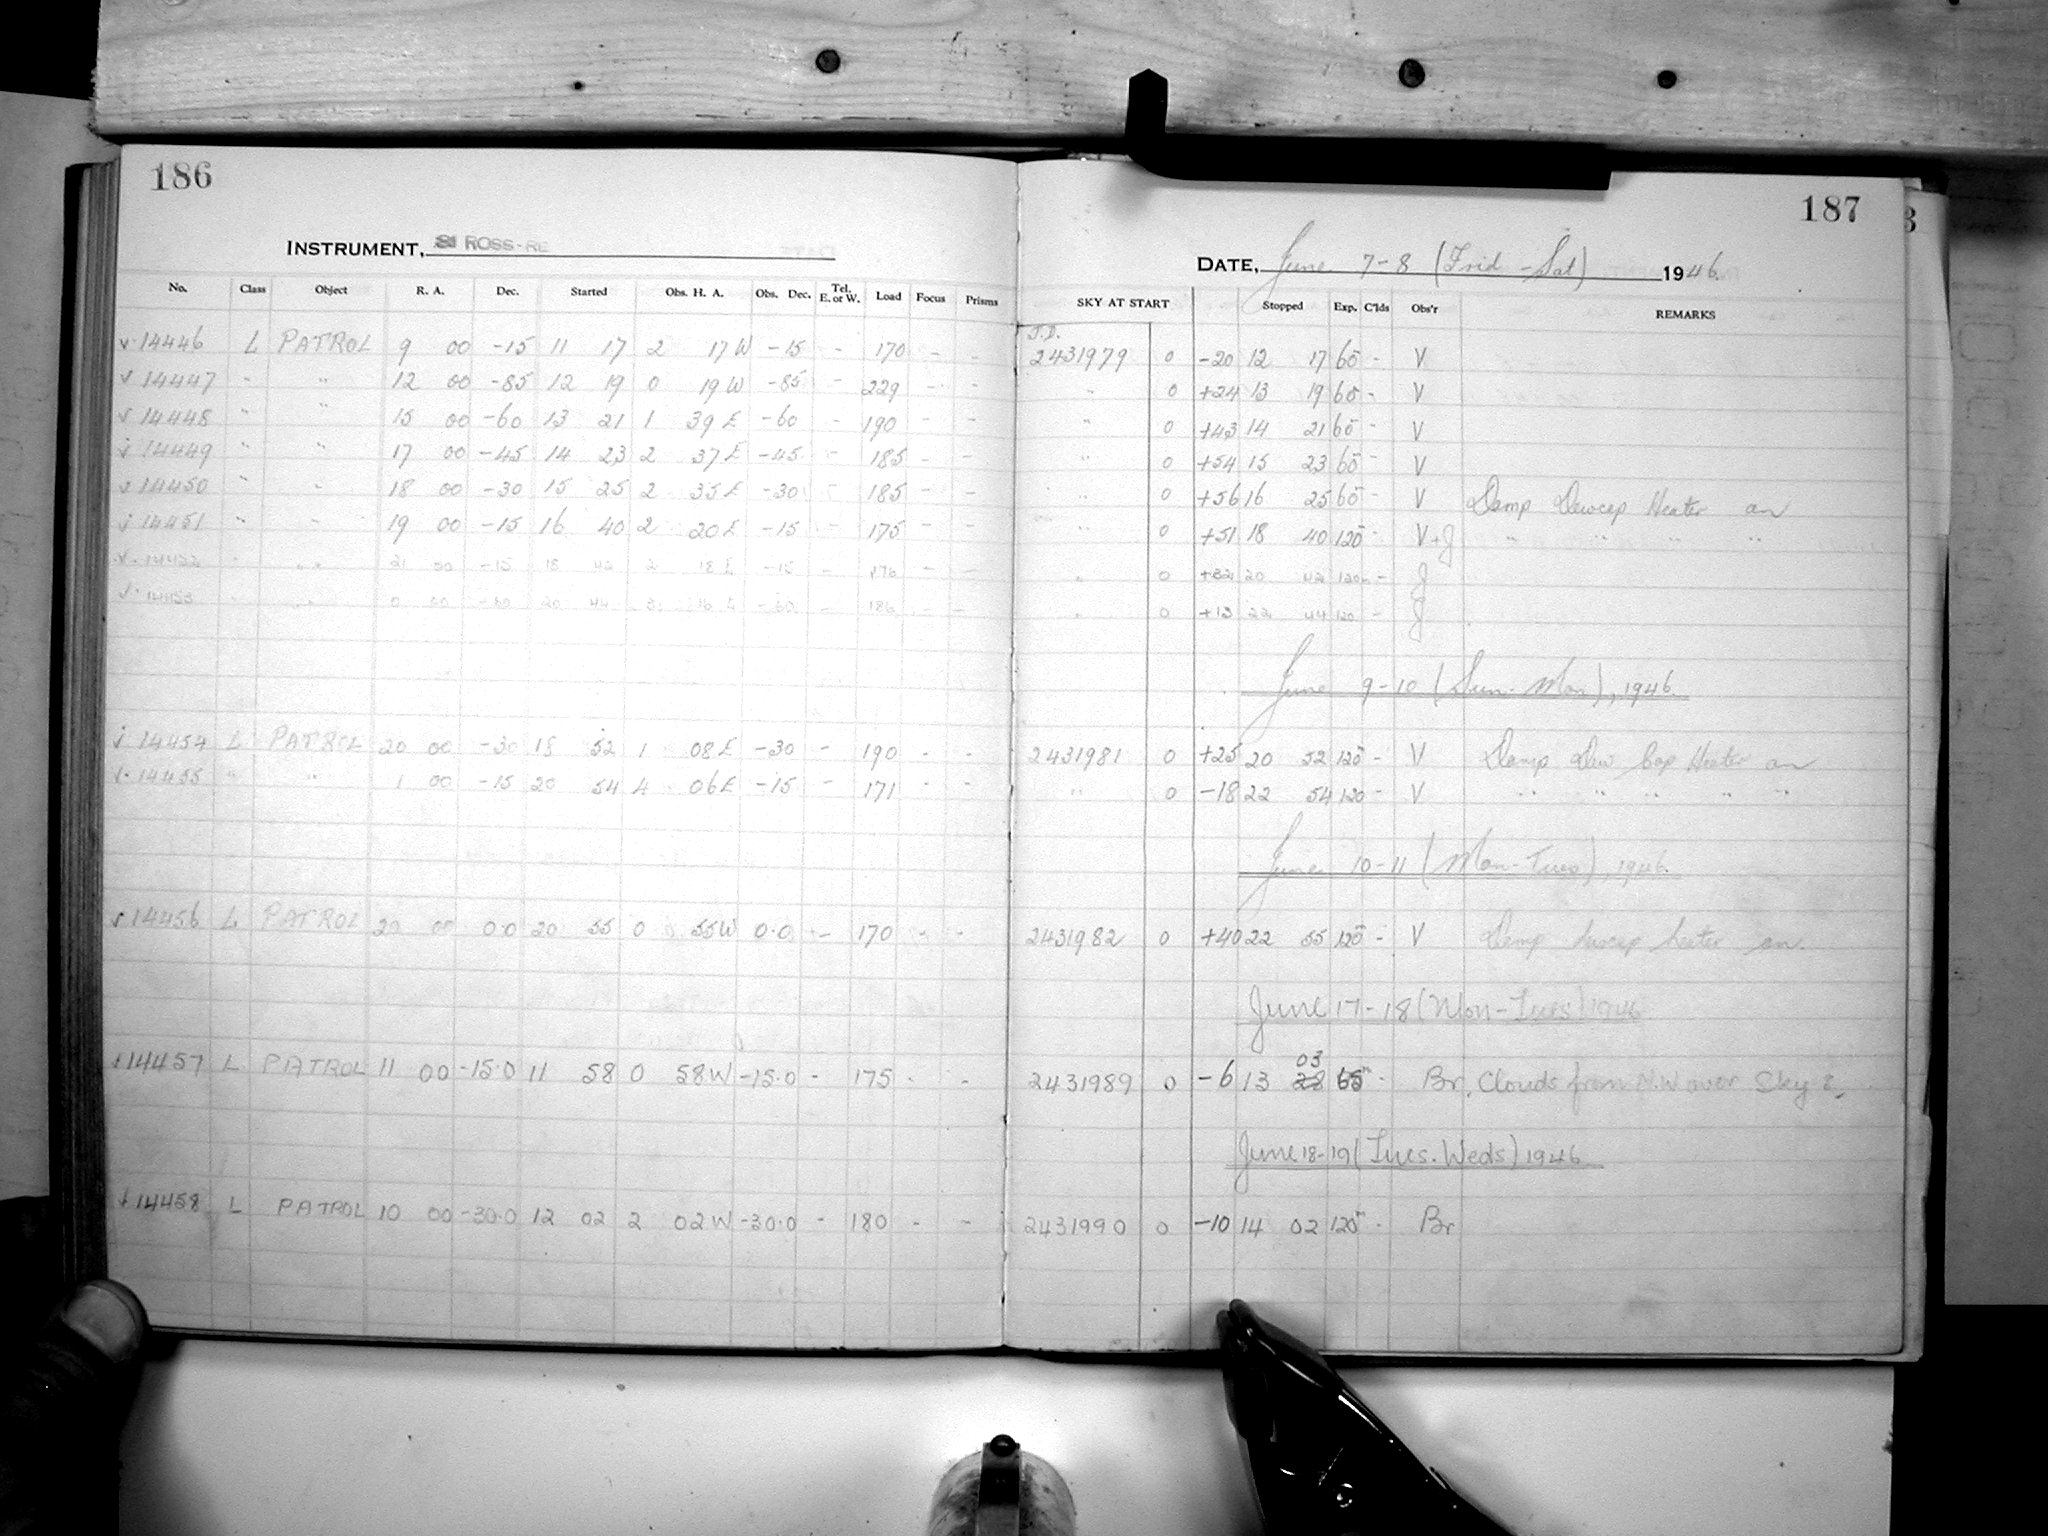 186
INSTRUMENT, ROSS-RE
No. Class Object R. A. Dec. Started Obs. H. A. Obs. Dec. Tel. E. or W. Load Focus Prisms
v 14446 L PATROL 9 00 -15 11 17 2 17 W -15 - 170 - -
v 14447 " " 12 00 -85 12 19 0 19 W -85 - 229 - -
v 14448 " " 15 00 -60 13 21 1 39 E -60 - 190 - -
v 14449 " " 17 00 -45 14 23 2 37 E -45 - 185 - -
v 14450 " " 18 00 -30 15 25 2 35 E -30 - 185 - -
v 14451 " " 19 00 -15 16 40 2 20 E -15 - 175 - -
v 14452 " " 21 00 -15 18 42 2 18 E -15 - 176 - -
v 14453 " " 0 00 -60 20 44 3 16 E -60 - 186 - -
v 14454 L PATROL 20 00 -30 18 52 1 08 E -30 - 190 - -
v 14455 " " 1 00 -15 20 54 4 06 E -15 - 171 - -
v 14456 L PATROL 20 00 0.0 20 55 0 55 W 0.0 - 170 - -
14457 L PATROL 11 00 -15.0 11 58 0 58 W -15.0 - 175 - -
14458 L PATROL 10 00 -30.0 12 02 2 02 W -30.0 - 180 - -
187
DATE, June 7-8 (Frid - Sat) 1946
SKY AT START Stopped Exp. C'lds Obs'r REMARKS
J.D.
2431979 0 -20 12 17 60 - V
" 0 +24 13 19 60 - V
" 0 +43 14 21 60 - V
" 0 +54 15 23 60 - V
" 0 +56 16 25 60 - V Damp Dewcap Heater on
" 0 +51 18 40 120 - V+J " " " "
" 0 +32 20 42 120 - J
" 0 +13 22 44 120 - J
June 9-10 (Sun-Mon), 1946
2431981 0 +25 20 52 120 - V Damp Dew Cap Heater on
" 0 -18 22 54 120 - V " " " " "
June 10-11 (Mon-Tues), 1946
2431982 0 +40 22 55 120 - V Damp dewcap heater on
June 17-18 (Mon-Tues) 1946
03
2431989 0 -6 13 28 65 - Br. Clouds from N.W over Sky
June 18-19 (Tues. Weds) 1946
2431990 0 -10 14 02 120 - Br